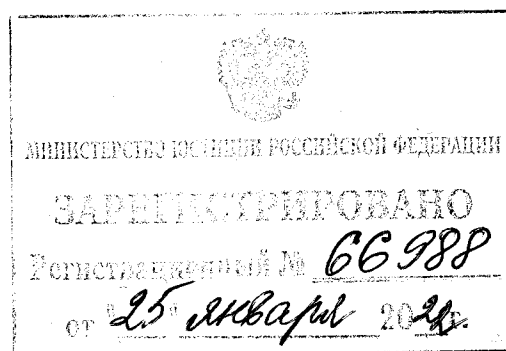 МИНИСТЕРСТВО ЮСТИЦИИ РОССИЙСКОЙ ФЕДЕРАЦИИ
ЗАРЕГИСТРИРОВАНО
Регистрационный № 66988
от "25" января 2022г.